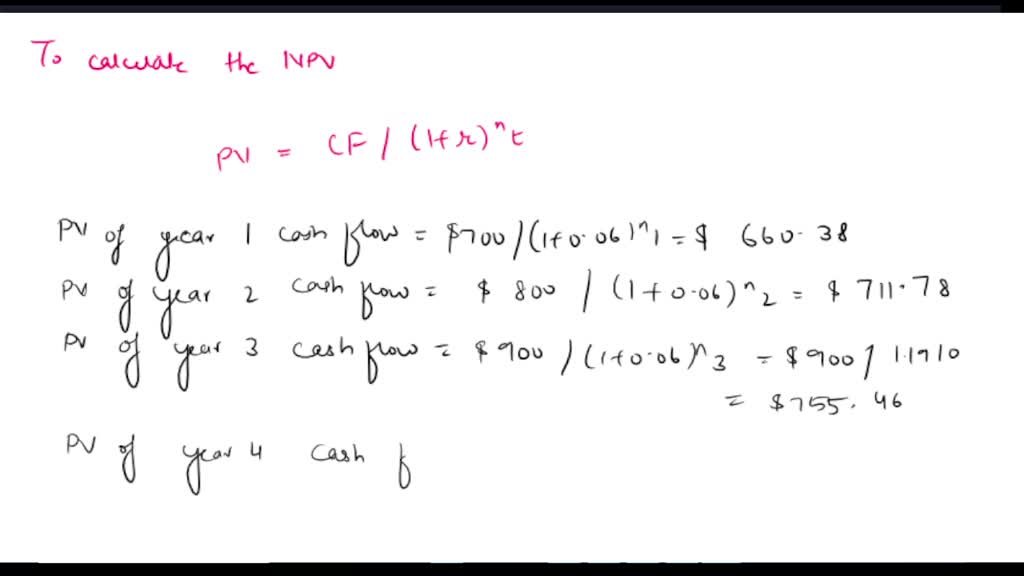 To calculate the NPV
PV = CF / (1+r)^n t
PV of year 1 cash flow = $700 / (1+0.06)^n 1 = $ 660.38
PV of year 2 cash flow = $ 800 / (1+0.06)^n 2 = $ 711.78
PV of year 3 cash flow = $900 / (1+0.06)^n 3 = $900 / 1.1910
= $755.46
PV of year 4 cash f